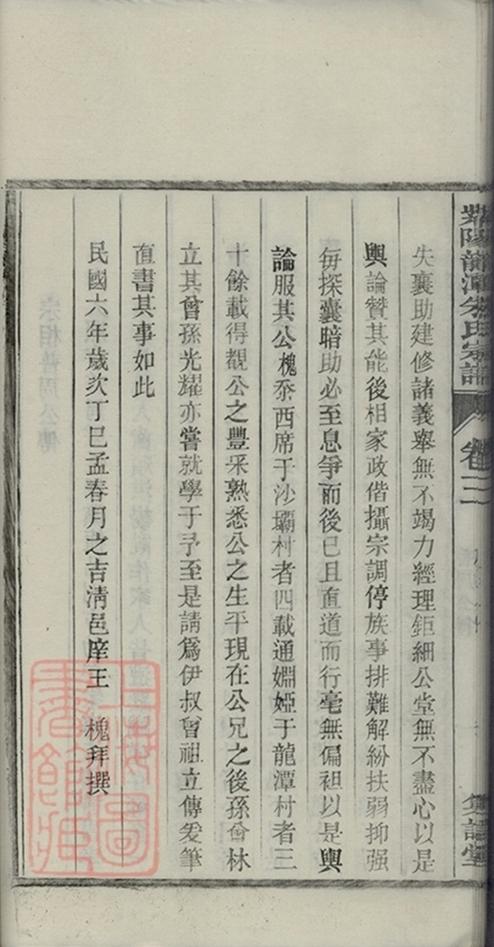 紫陽龍潭朱氏宗譜 卷三
失襄助建修諸義舉無不竭力經理鉅細公堂無不盡心以是
輿論贊其能後相家政偕攝宗調停族事排難解紛扶弱抑强
每探囊暗助必至息爭而後已且直道而行毫無偏袒以是輿
論服其公槐忝西席于沙壩村者四載通婣婭于龍潭村者三
十餘載得覩公之豐采熟悉公之生平現在公兄之後孫喬林
立其曾孫光耀亦嘗就學于予至是請爲伊叔曾祖立傳爰筆
直書其事如此
民國六年歲次丁巳孟春月之吉淸邑庠王 槐拜撰